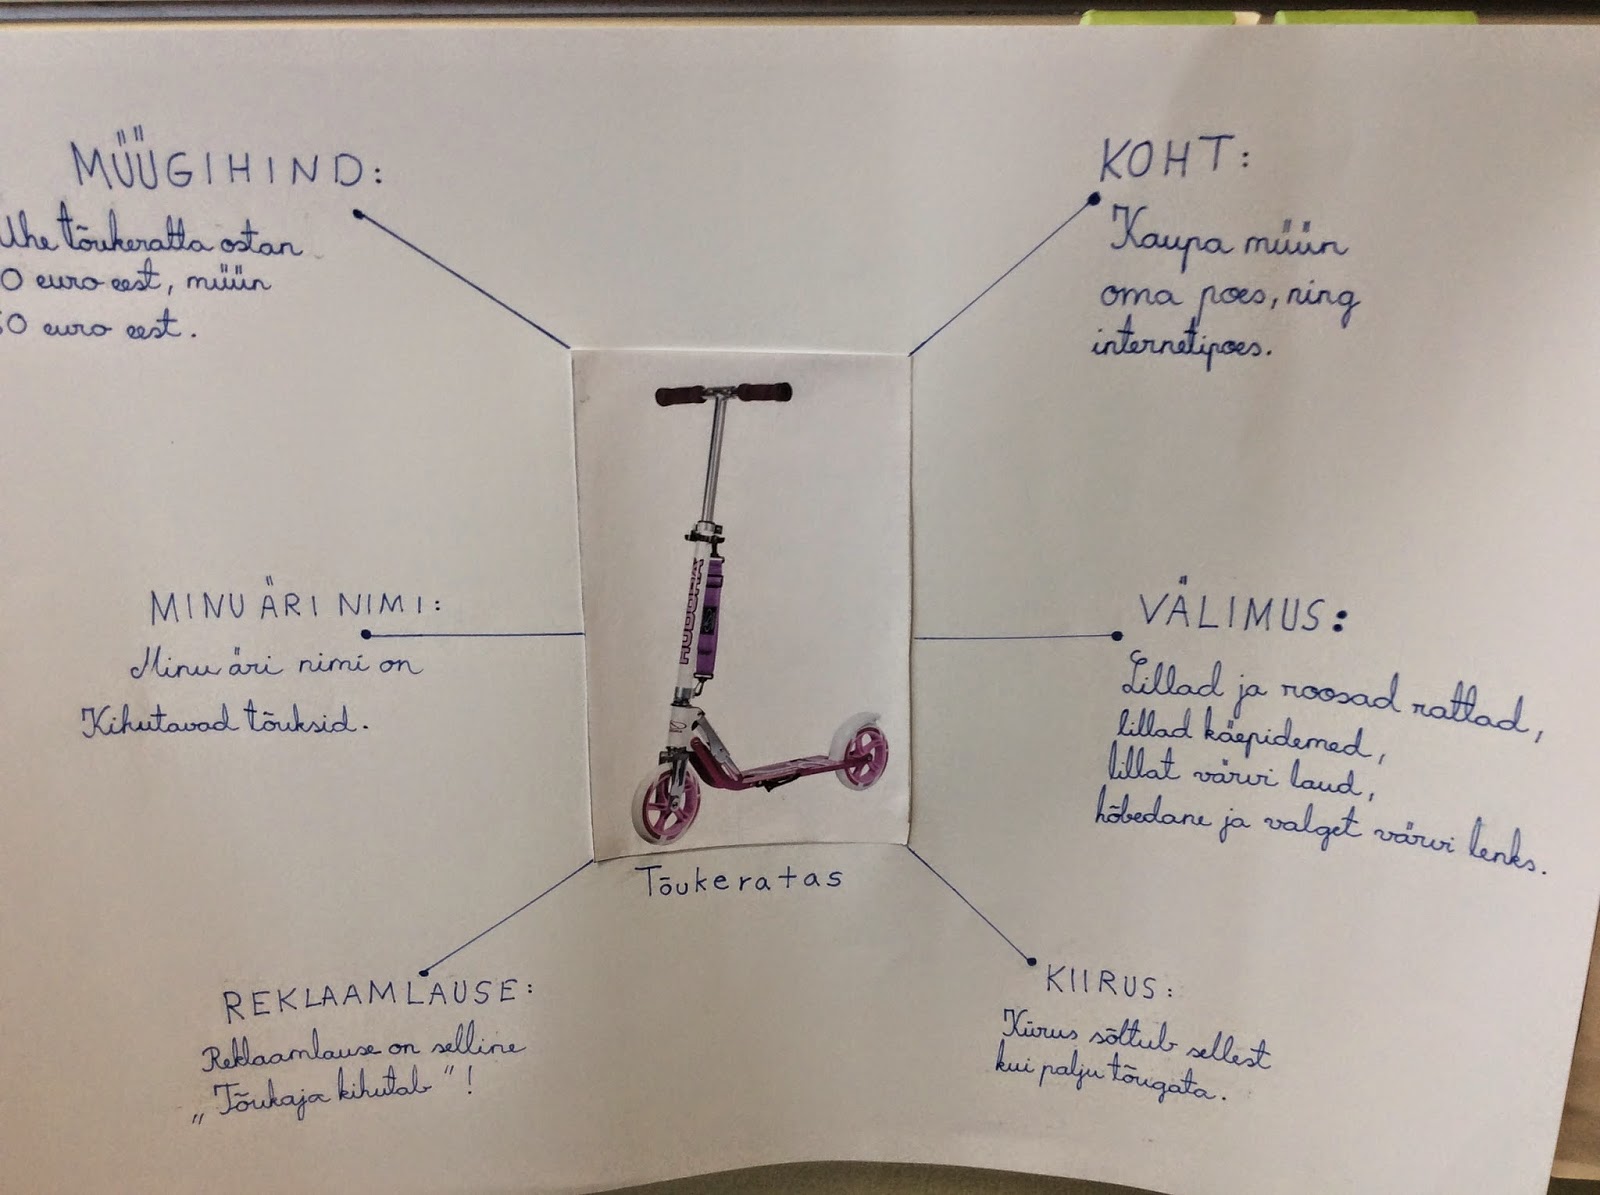 MÜÜGIHIND:
Ühe tõukeratta ostan
0 euro eest, müün
0 euro eest.
KOHT:
Kaupa müün
oma poes, ning
internetipoes.
HUDORA
MINU ÄRI NIMI:
Minu äri nimi on
Kihutavad tõuksid.
VÄLIMUS:
Lillad ja roosad rattad,
lillad käepidemed,
lillat värvi laud,
hõbedane ja valget värvi lenks.
Tõukeratas
REKLAAMLAUSE:
Reklaamlause on selline
„Tõukaja kihutab"!
KIIRUS:
Kiirus sõltub sellest
kui palju tõugata.